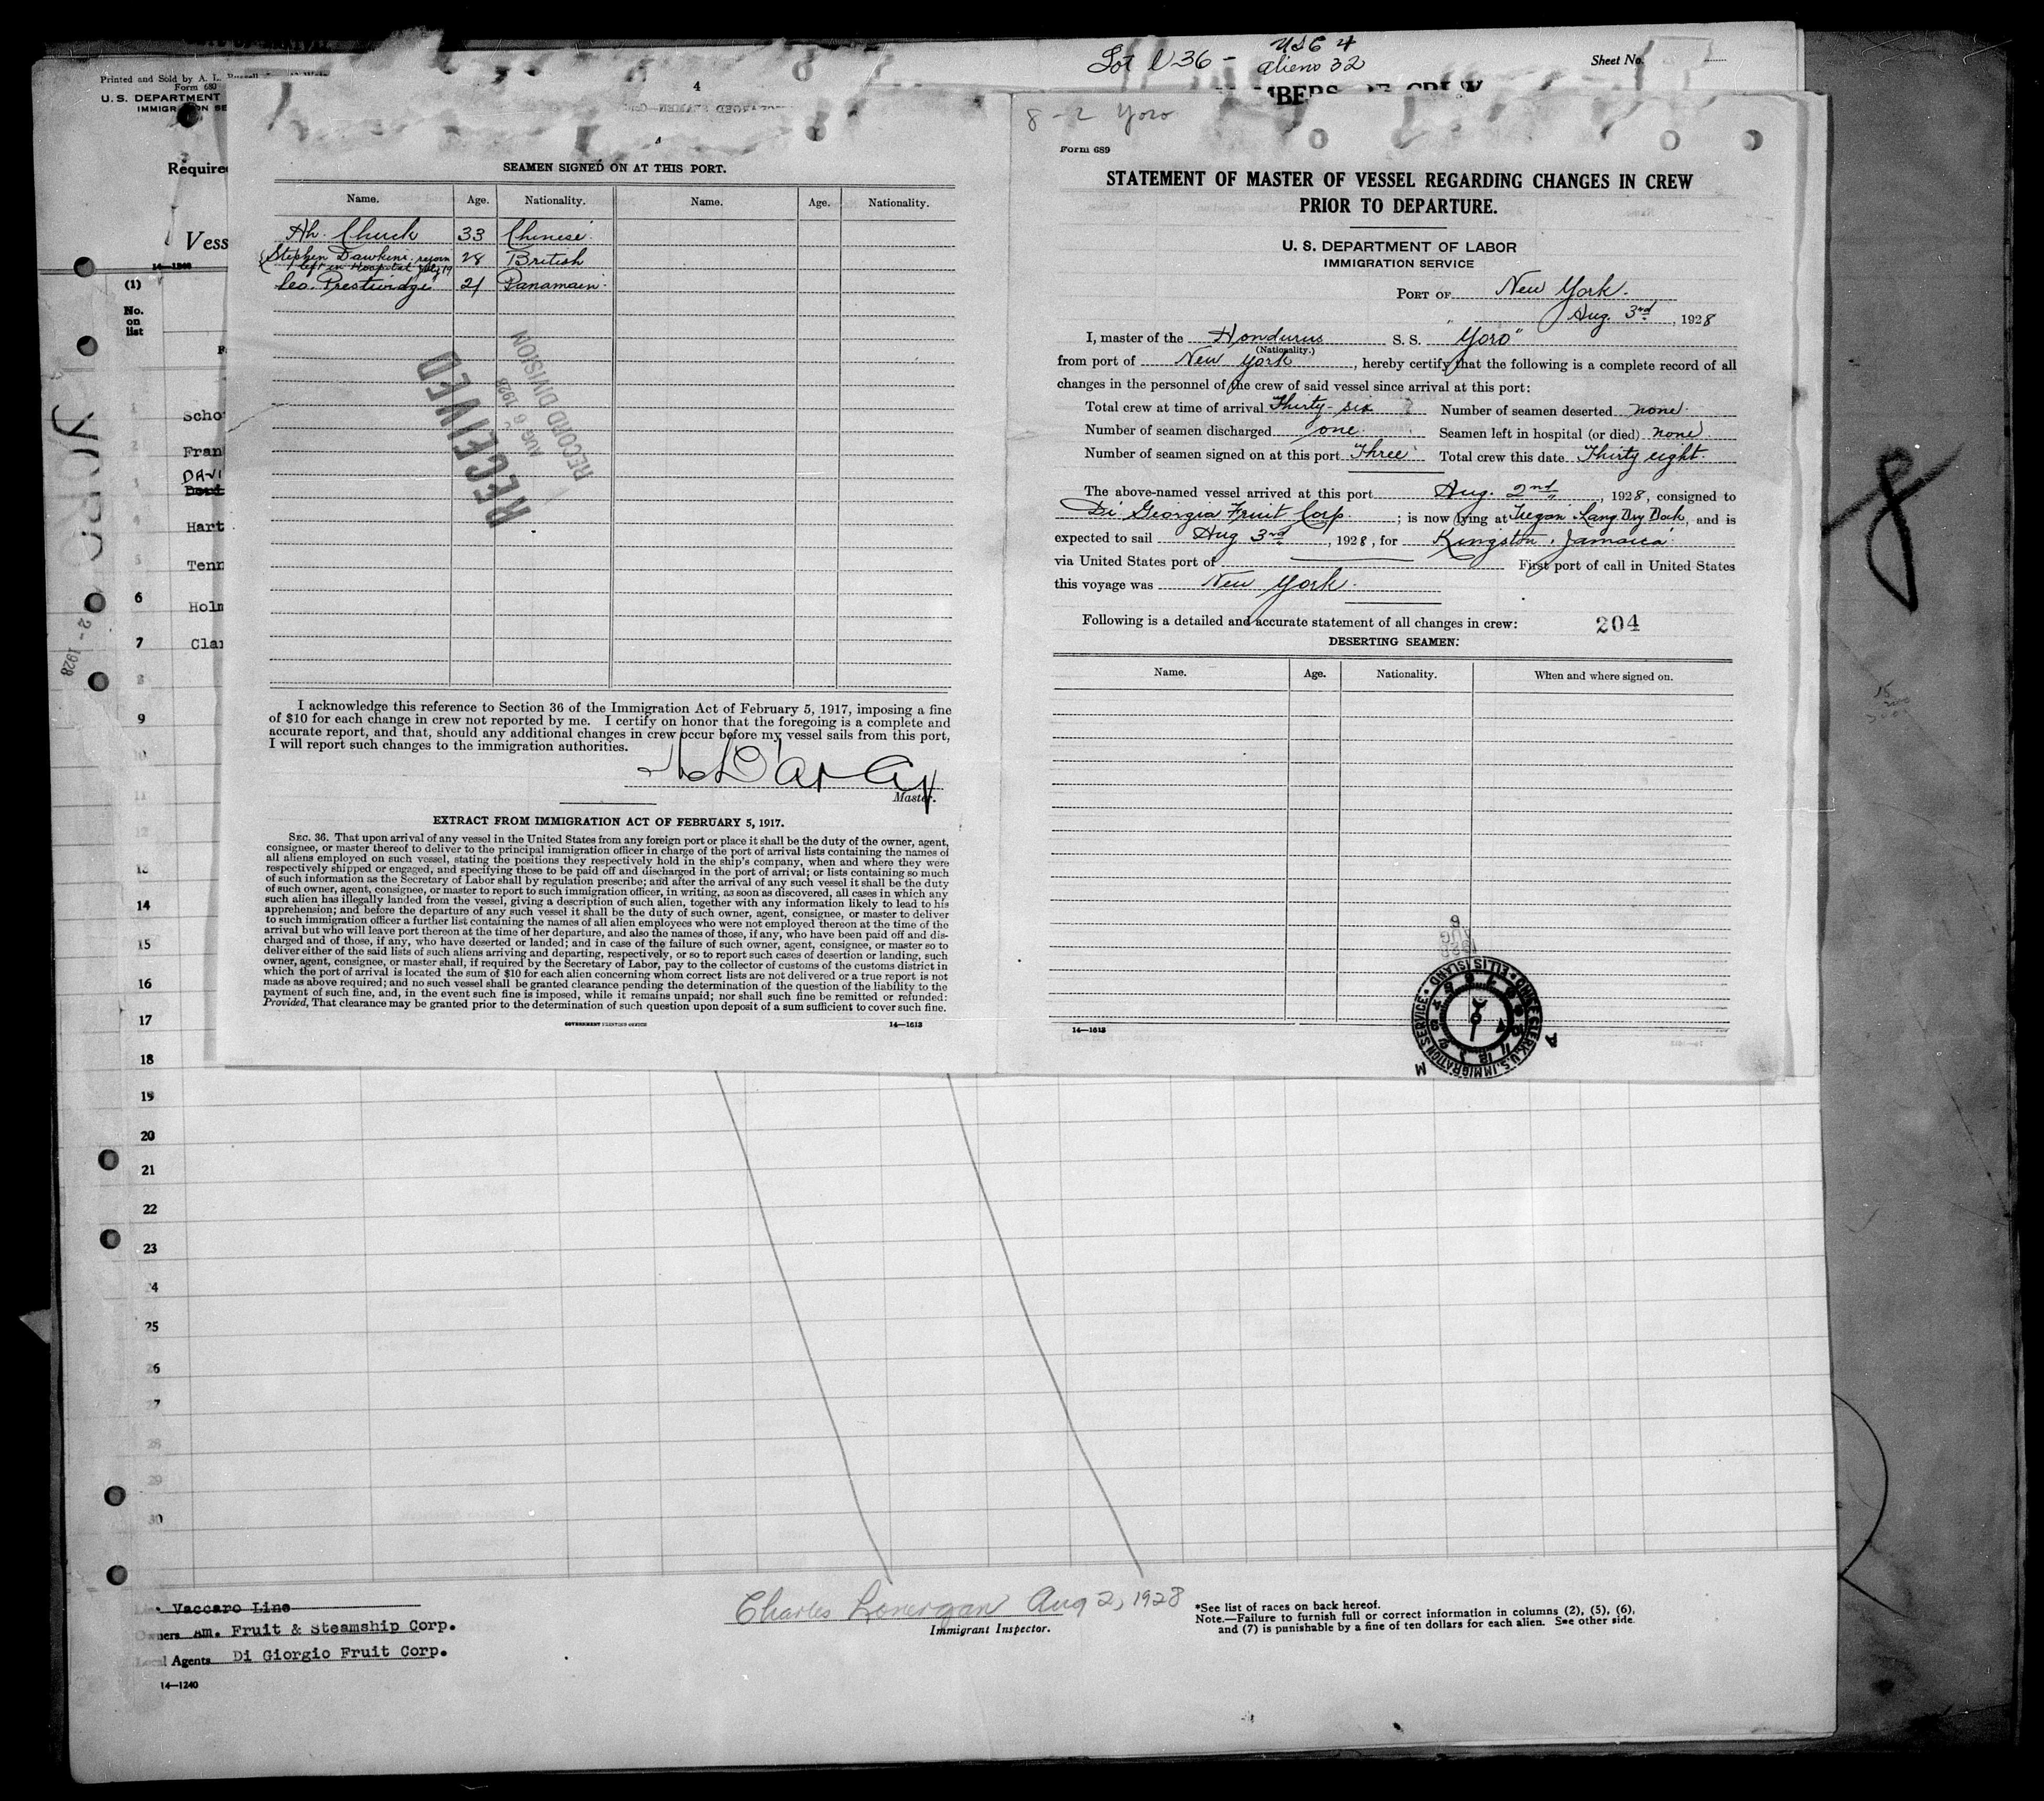 Printed and Sold by A. L.
Form 680
U. S. DEPARTMENT
Lot 1-36 - USC 4
aliens 32
Sheet No.
Require
Vess
14-1240
(1)
No.
on
list
Scho
Fran
DAVI
Hart
Tenn
Holm
Clar
1
2
3
4
5
6
7
8
9
10
11
12
13
14
15
16
17
18
19
20
21
22
23
4
25
6
7
28
29
30
Yoro
2- 1928
4
SEAMEN SIGNED ON AT THIS PORT.
Name. Age. Nationality. Name. Age. Nationality.
Ah. Chuck 33 Chinese.
Stephen Dawkins rejoin 28 British
left in Hospital July 19
Leo. Prestwidge 21 Panamain.
RECEIVED
AUG 6 1928
RECORD DIVISION
I acknowledge this reference to Section 36 of the Immigration Act of February 5, 1917, imposing a fine
of $10 for each change in crew not reported by me. I certify on honor that the foregoing is a complete and
accurate report, and that, should any additional changes in crew occur before my vessel sails from this port,
I will report such changes to the immigration authorities.
Master.
EXTRACT FROM IMMIGRATION ACT OF FEBRUARY 5, 1917.
SEC. 36. That upon arrival of any vessel in the United States from any foreign port or place it shall be the duty of the owner, agent,
consignee, or master thereof to deliver to the principal immigration officer in charge of the port of arrival lists containing the names of
all aliens employed on such vessel, stating the positions they respectively hold in the ship's company, when and where they were
respectively shipped or engaged, and specifying those to be paid off and discharged in the port of arrival; or lists containing so much
of such information as the Secretary of Labor shall by regulation prescribe; and after the arrival of any such vessel it shall be the duty
of such owner, agent, consignee, or master to report to such immigration officer, in writing, as soon as discovered, all cases in which any
such alien has illegally landed from the vessel, giving a description of such alien, together with any information likely to lead to his
apprehension; and before the departure of any such vessel it shall be the duty of such owner, agent, consignee, or master to deliver
to such immigration officer a further list containing the names of all alien employees who were not employed thereon at the time of the
arrival but who will leave port thereon at the time of her departure, and also the names of those, if any, who have been paid off and dis-
charged and of those, if any, who have deserted or landed; and in case of the failure of such owner, agent, consignee, or master so to
deliver either of the said lists of such aliens arriving and departing, respectively, or so to report such cases of desertion or landing, such
owner, agent, consignee, or master shall, if required by the Secretary of Labor, pay to the collector of customs of the customs district in
which the port of arrival is located the sum of $10 for each alien concerning whom correct lists are not delivered or a true report is not
made as above required; and no such vessel shall be granted clearance pending the determination of the question of the liability to the
payment of such fine, and, in the event such fine is imposed, while it remains unpaid; nor shall such fine be remitted or refunded:
Provided, That clearance may be granted prior to the determination of such question upon deposit of a sum sufficient to cover such fine.
GOVERNMENT PRINTING OFFICE 14-1613
8-2 Yoro
Form 689
STATEMENT OF MASTER OF VESSEL REGARDING CHANGES IN CREW
PRIOR TO DEPARTURE.
U. S. DEPARTMENT OF LABOR
IMMIGRATION SERVICE
PORT OF New York.
Aug. 3rd, 1928
I, master of the Hondurus S. S. "Yoro"
(Nationality.)
from port of New York, hereby certify that the following is a complete record of all
changes in the personnel of the crew of said vessel since arrival at this port:
Total crew at time of arrival Thirty-six Number of seamen deserted none.
Number of seamen discharged one. Seamen left in hospital (or died) none.
Number of seamen signed on at this port Three Total crew this date Thirty eight.
The above-named vessel arrived at this port Aug. 2nd, 1928, consigned to
Di Georgia Fruit Corp.; is now lying at Tiegan Lang Dry Dock, and is
expected to sail Aug 3rd, 1928, for Kingston, Jamaica.
via United States port of First port of call in United States
this voyage was New York.
Following is a detailed and accurate statement of all changes in crew: 204
DESERTING SEAMEN:
Name. Age. Nationality. When and where signed on.
AUG 6 1928
CHIEF CLERK, U. S. IMMIGRATION SERVICE • ELLIS ISLAND
14-1613
Vaccaro Line
Owners Am. Fruit & Steamship Corp.
Local Agents Di Giorgio Fruit Corp.
14-1240
Charles Lonergan Aug 2, 1928
Immigrant Inspector.
*See list of races on back hereof.
Note.—Failure to furnish full or correct information in columns (2), (5), (6),
and (7) is punishable by a fine of ten dollars for each alien. See other side.